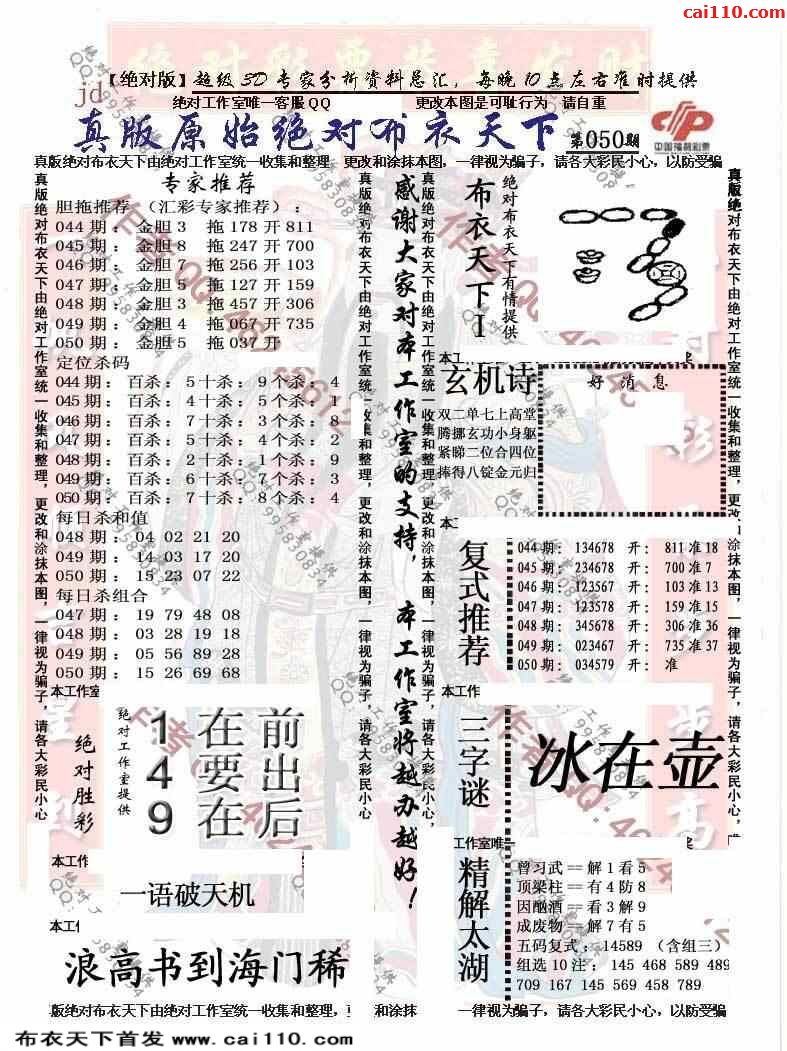 cai110.com
【绝对版】超级3D专家分析资料总汇，每晚10点左右准时提供
jd
绝对工作室唯一客服QQ 更改本图是可耻行为 请自重
真版原始绝对布衣天下 第050期
中国福利彩票
真版绝对布衣天下由绝对工作室统一收集和整理 更改和涂抹本图，一律视为骗子，请各大彩民小心，以防受骗
真版绝对布衣天下由绝对工作室统一收集和整理，更改和涂抹本图，一律视为骗子，请各大彩民小心
专家推荐
胆拖推荐 （汇彩专家推荐）：
044期：金胆3 拖178开811
045期：金胆8 拖247开700
046期：金胆7 拖256开103
047期：金胆5 拖127开159
048期：金胆3 拖457开306
049期：金胆4 拖067开735
050期：金胆5 拖037开
定位杀码
044期：百杀：5十杀：9个杀：4
045期：百杀：4十杀：5个杀：1
046期：百杀：7十杀：3个杀：8
047期：百杀：5十杀：4个杀：2
048期：百杀：2十杀：1个杀：9
049期：百杀：6十杀：7个杀：3
050期：百杀：7十杀：8个杀：4
每日杀和值
048期：04 02 21 20
049期：14 03 17 20
050期：15 23 07 22
每日杀组合
047期：19 79 48 08
048期：03 28 19 18
049期：05 56 89 28
050期：15 26 69 68
本工作室
绝对胜彩
绝对工作室提供
1在前
4要出
9在后
本工作
一语破天机
本工作
浪高书到海门稀
感谢大家对本工作室的支持，本工作室将越办越好！
布衣天下I
绝对布衣天下有情提供
本工
玄机诗
双二单七上高堂
腾挪玄功小身躯
紧睇二位合四位
捧得八锭金元归
好消息
本工
复式推荐
044期： 134678 开： 811准18
045期： 234678 开： 700准7
046期： 123567 开： 103准13
047期： 123578 开： 159准15
048期： 345678 开： 306准36
049期： 023467 开： 735准37
050期： 034579 开： 准
本工作
三字谜
冰在壶
工作室唯一
精解太湖
曾习武==解1看5
顶梁柱==有4防8
因酗酒==看3解9
成废物==解7有5
五码复式：14589 （含组三）
组选10注：145 468 589 489
709 167 145 569 458 789
版绝对布衣天下由绝对工作室统一收集和整理，更 和涂抹 一律视为骗子，请各大彩民小心，以防受骗
布衣天下首发 www.cai110.com